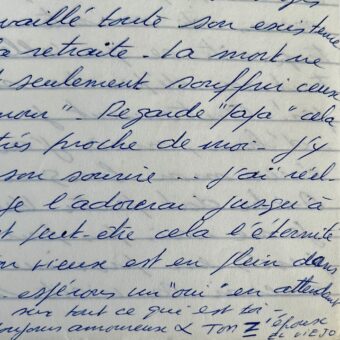 vaillé toute son existence
la retraite. La mort ne
t seulement souffrir ceux
mour". Regarde "Papa" cela
très proche de moi. J'y
son sourire... j'ai réel-
je l'adorerai jusqu'à
t peut-être cela l'éternité
vieux est en plein dans
espérons un "oui" en attendant
sur tout ce qui est toi -
toujours amoureux & Ton
époux